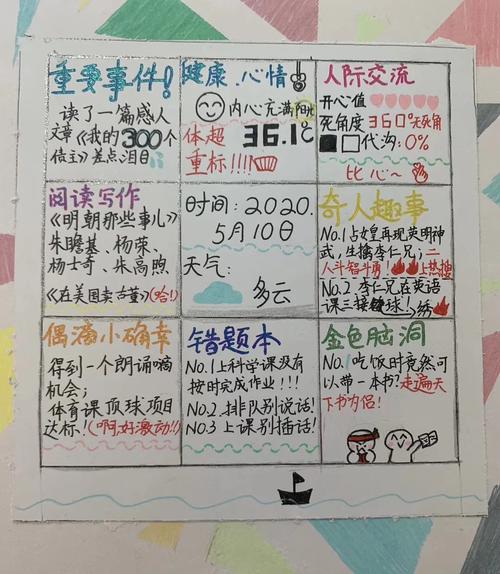 重要事件!
读了一篇感人
文章《我的300个
信》差点泪目
健康.心情
内心充满阳光
体超 36.1℃
重标!!!!
人际交流
开心值
死角度360°无死角
代沟:0%
比心~
阅读写作
《明朝那些事儿》
朱瞻基、杨荣、
杨士奇、朱高煦
《在美国卖古董》(哈!)
时间:2020.
5月10日
天气:
多云
奇人趣事
No.1占女皇再现英明神
武,生擒李仁兄;二
人斗智斗勇!上热搜
No.2 李仁兄在英语
课三接球!绣
偶滴小确幸
得到一个朗诵滴
机会;
体育课顶球项目
达标!(啊,好激动!)
错题本
No.1上科学课没有
按时完成作业!!!
No.2.排队别说话!
No.3 上课别插话!
金色脑洞
No.1吃饭时竟然可
以带一本书?走遍天
下书为侣!